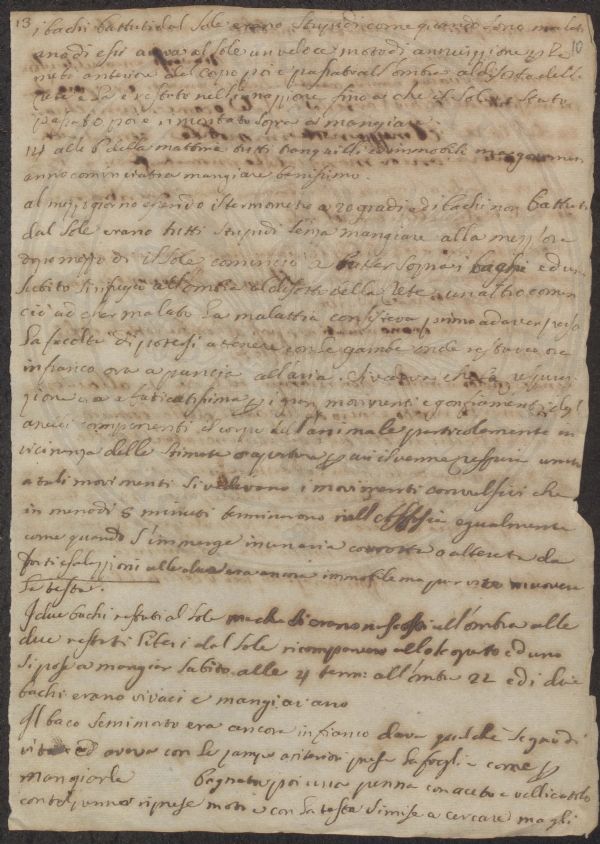 13 i bachi battuti dal Sole erano stupidi come quando sono malati
10
uno di essi aveva al Sole un veloce moto di annessione nelle
anteriore del capo poi è passato all'ombra al disotto della
rete e là è restato fino a che il Sole è stato
passato poi è rimontato sopra a mangiare.
14 alle 6 della mattina tutti tranquilli ed immobili ma
anno cominciato a mangiare benissimo.
al mezzogiorno essendo il termometro a 20 gradi ed i bachi non battuti
dal Sole erano tutti stupidi senza mangiare alla mezz'ora
dopo mezzo dì il Sole cominciò a batter sopra i bachi ed uno
subito si rifugiò all'ombra al disotto della rete un altro comin
ciò ad esser malato la malattia consisteva primo ad aver perso
la facoltà di potersi attenere con le gambe onde restava ora
in fianco ora a pancia all'aria. Si vedeva che la respira
zione era faticatissima per i gran movimenti e gonfiamenti degl'
anelli componenti il corpo dell'animale particolarmente in
vicinanza delle stimate o aperture per cui si viene respirare unito
a tali movimenti si vedevano i movimenti convulsivi che
in meno di 8 minuti terminarono nell'asfissia egualmente
come quando s'immerge in un'aria corrotta o alterata da
forti esalazioni alle due era ancora immobile ma per vita muovere
la testa.
I due bachi restati al Sole ma che si erano nascosti all'ombra alle
due restati liberi dal Sole ricomparvero allo scoperto ed uno
si pose a mangiar subito alle 4 term: all'ombra 22 ed i due
bachi erano vivaci e mangiavano
Il baco semimorto era ancora in fianco dava qualche segno di
vita ed aveva con le zampe anteriori presa la foglia come per
mangiarla bagnata poi una penna con aceto e vellicatolo
con tal penna riprese moto e con la testa si mise a cercare ma gli